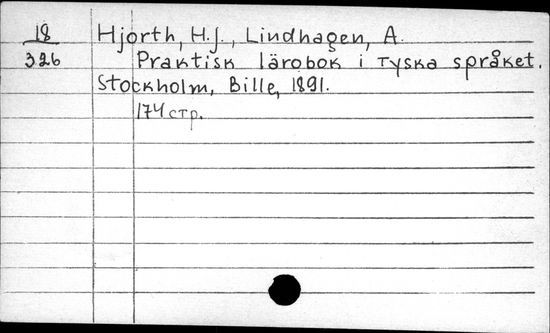 18
326
Hjorth, H.J., Lindhagen, A.
Praktisk lärobok i tyska språket.
Stockholm, Bille, 1891.
174 стр.